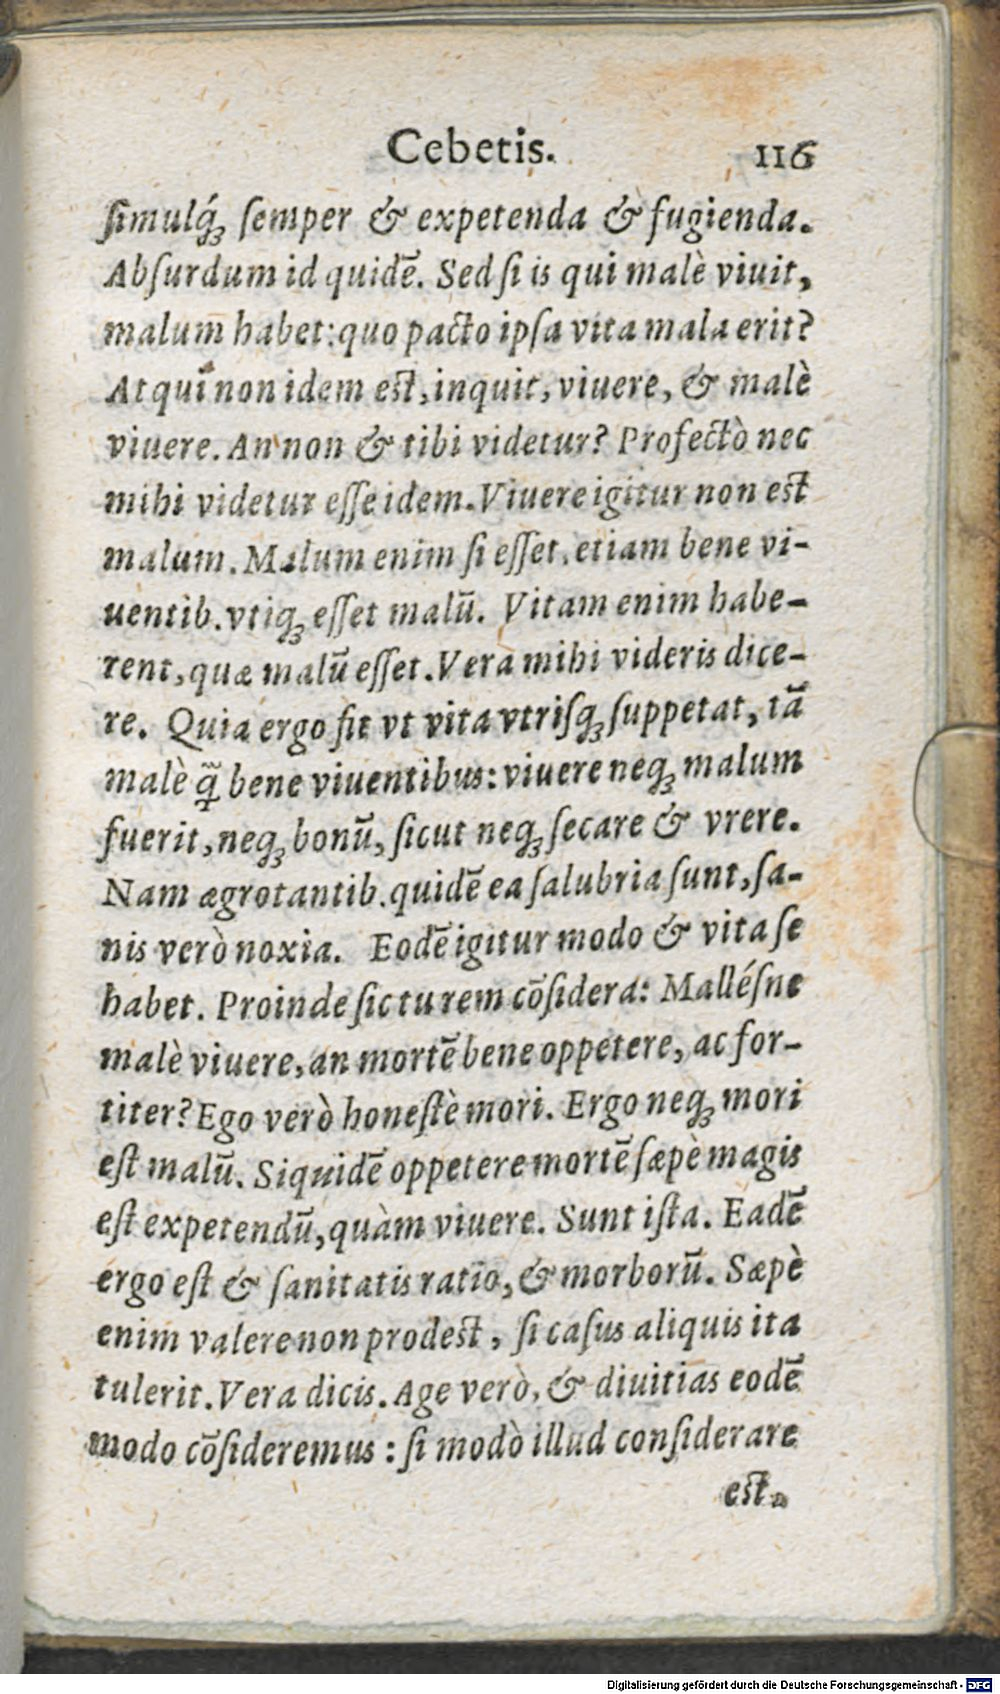 Cebetis. 116
ſimulq́ꝫ ſemper & expetenda & fugienda.
Abſurdum id quidē. Sed ſi is qui malè viuit,
malum habet: quo pacto ipſa vita mala erit?
Atqui non idem est, inquit, viuere, & malè
viuere. An non & tibi videtur? Profectò nec
mihi videtur eſſe idem. Viuere igitur non est
malum. Malum enim ſi eſſet, etiam bene vi-
uentib. vtiqꝫ eſſet malū. Vitam enim habe-
rent, quæ malū eſſet. Vera mihi videris dice-
re. Quia ergo fit vt vita vtriſqꝫ ſuppetat, tā
malè q̃ bene viuentibus: viuere neqꝫ malum
fuerit, neqꝫ bonū, ſicut neqꝫ ſecare & vrere.
Nam ægrotantib. quidē ea ſalubria ſunt, ſa-
nis verò noxia. Eodē igitur modo & vita ſe
habet. Proinde ſic tu rem cōſidera: Malléſne
malè viuere, an mortē bene oppetere, ac for-
titer? Ego verò honeſtè mori. Ergo neqꝫ mori
eſt malū. Siquidē oppetere mortē ſæpè magis
eſt expetendū, quàm viuere. Sunt iſta. Eadē
ergo eſt & ſanitatis ratio, & morborū. Sæpè
enim valere non prodest, ſi caſus aliquis ita
tulerit. Vera dicis. Age verò, & diuitias eodē
modo cōſideremus: ſi modò illud conſiderare
est.
Digitalisierung gefördert durch die Deutsche Forschungsgemeinschaft - DFG